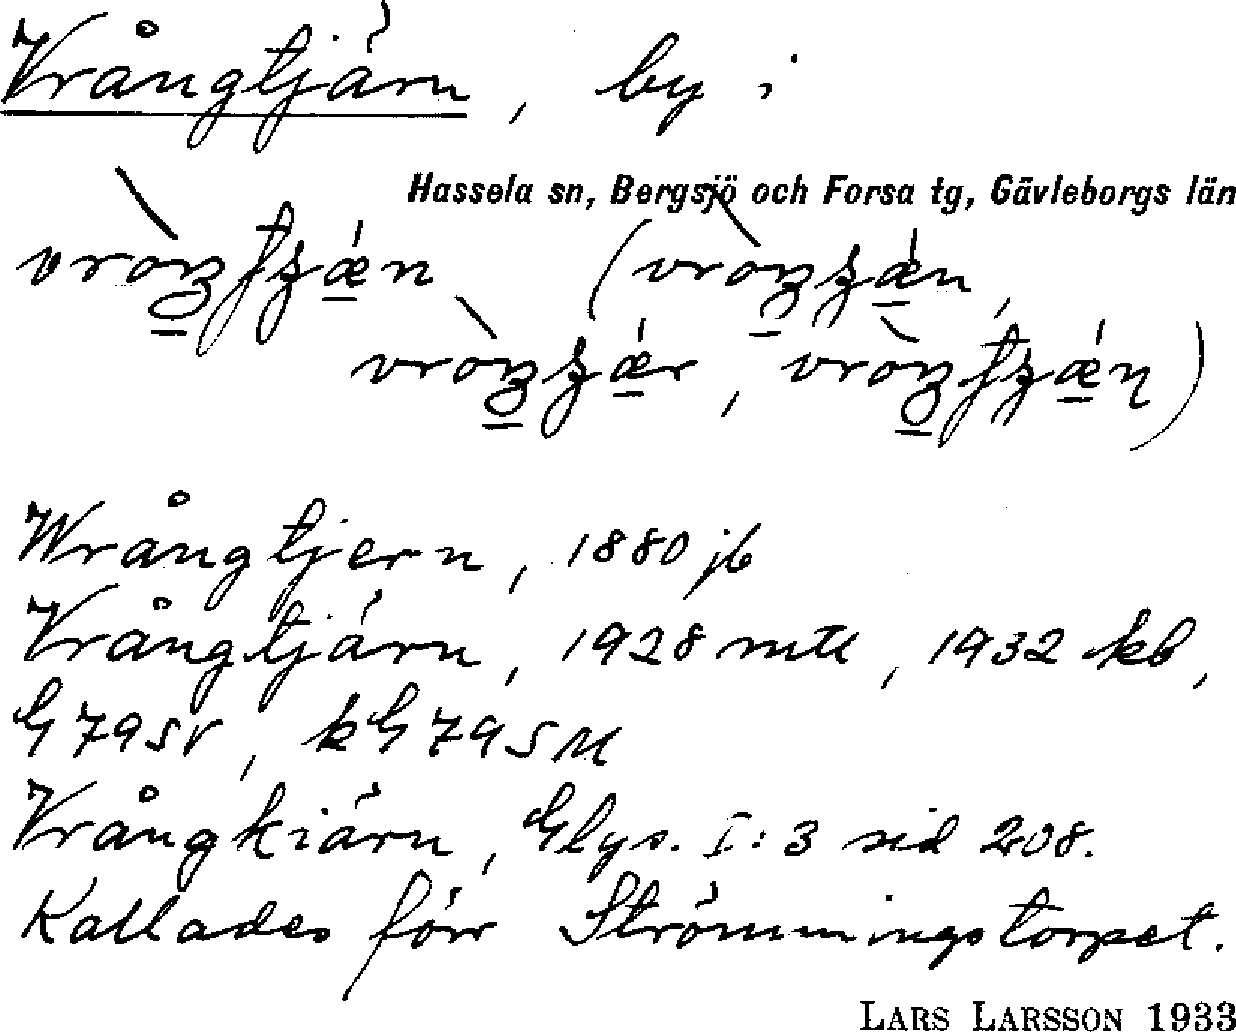 Vrångtjärn, by i
Hassela sn, Bergsjö och Forsa tg, Gävleborgs län
Wrångtjern, 1880 jb
Vrångtjärn, 1928 mtl, 1932 kb,
G 79 SV, kG 79 SM
Vrångkiärn, Glys. I:3 sid 208.
Kallades förr Strömmingstorpet.
LARS LARSSON 1933